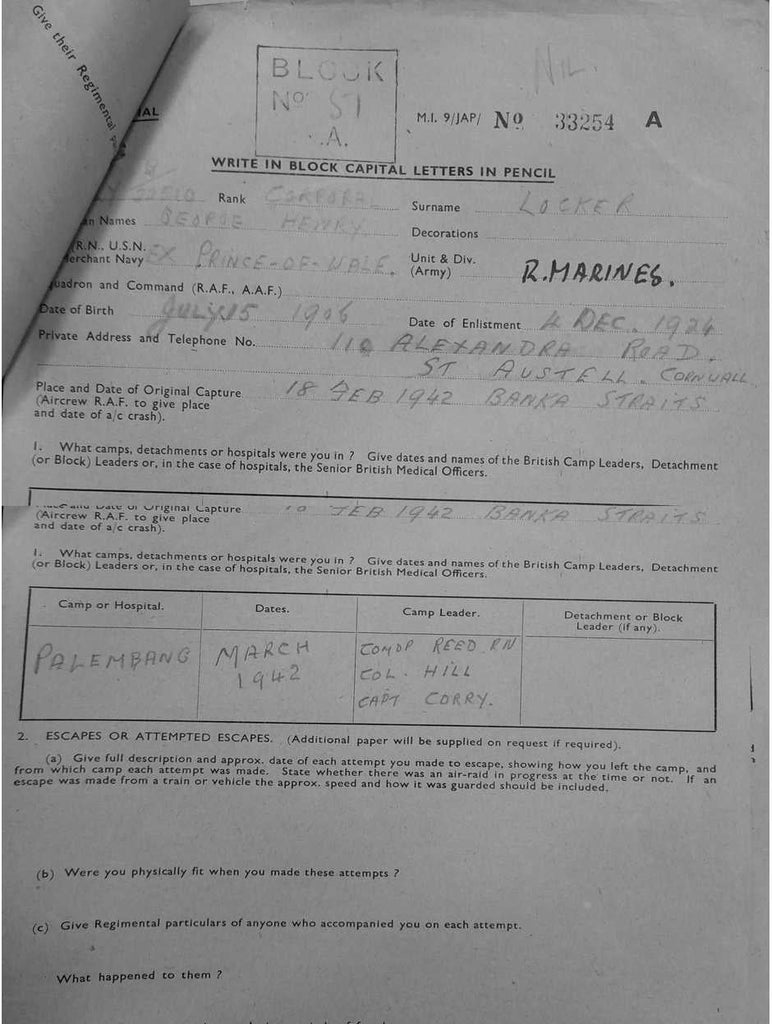 Give their Regimental
IAL
BLOCK
No 51
.A.
NIL.
M.I. 9/JAP/ No 33254 A
WRITE IN BLOCK CAPITAL LETTERS IN PENCIL
Rank CORPORAL Surname LOCKER
an Names GEORGE HENRY Decorations
(R.N., U.S.N.
erchant Navy EX PRINCE-OF-WALE. Unit & Div.
(Army) R.MARINES.
uadron and Command (R.A.F., A.A.F.)
Date of Birth JULY 15 1906 Date of Enlistment 4 DEC. 1924
Private Address and Telephone No. 110 ALEXANDRA ROAD.
ST AUSTELL. CORNWALL
Place and Date of Original Capture 18 FEB 1942 BANKA STRAITS
(Aircrew R.A.F. to give place
and date of a/c crash).
1. What camps, detachments or hospitals were you in ? Give dates and names of the British Camp Leaders, Detachment
(or Block) Leaders or, in the case of hospitals, the Senior British Medical Officers.
and Date of Original Capture FEB 1942 BANKA STRAITS
(Aircrew R.A.F. to give place
and date of a/c crash).
1. What camps, detachments or hospitals were you in ? Give dates and names of the British Camp Leaders, Detachment
(or Block) Leaders or, in the case of hospitals, the Senior British Medical Officers.
Camp or Hospital. Dates. Camp Leader. Detachment or Block
Leader (if any).
PALEMBANG MARCH COMDR REED RN
1942 COL. HILL
CAPT CORRY.
2. ESCAPES OR ATTEMPTED ESCAPES. (Additional paper will be supplied on request if required).
(a) Give full description and approx. date of each attempt you made to escape, showing how you left the camp, and
from which camp each attempt was made. State whether there was an air-raid in progress at the time or not. If an
escape was made from a train or vehicle the approx. speed and how it was guarded should be included.
(b) Were you physically fit when you made these attempts ?
(c) Give Regimental particulars of anyone who accompanied you on each attempt.
What happened to them ?